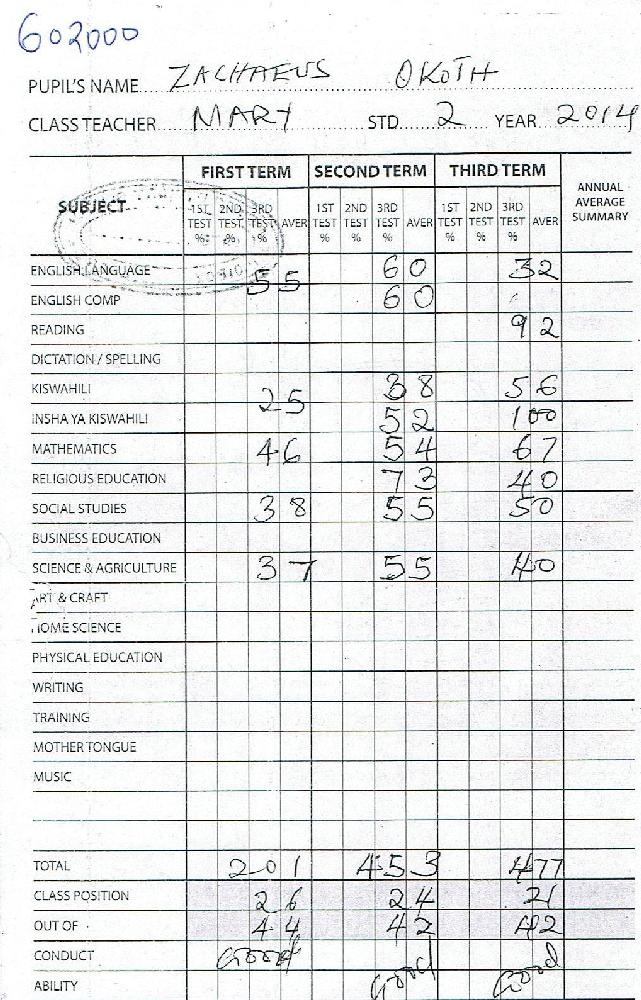 602000
PUPIL'S NAME ZACHAEUS OKOTH
CLASS TEACHER MARY STD. 2 YEAR 2014
SUBJECT FIRST TERM SECOND TERM THIRD TERM ANNUAL AVERAGE SUMMARY
1ST TEST % 2ND TEST % 3RD TEST % AVER 1ST TEST % 2ND TEST % 3RD TEST % AVER 1ST TEST % 2ND TEST % 3RD TEST % AVER
ENGLISH LANGUAGE 55 60 32
ENGLISH COMP 60
READING 92
DICTATION / SPELLING
KISWAHILI 25 38 56
INSHA YA KISWAHILI 52 100
MATHEMATICS 46 54 67
RELIGIOUS EDUCATION 73 40
SOCIAL STUDIES 38 55 50
BUSINESS EDUCATION
SCIENCE & AGRICULTURE 37 55 40
ART & CRAFT
HOME SCIENCE
PHYSICAL EDUCATION
WRITING
TRAINING
MOTHER TONGUE
MUSIC
TOTAL 201 453 477
CLASS POSITION 26 24 21
OUT OF 44 42 42
CONDUCT Good Good Good
ABILITY